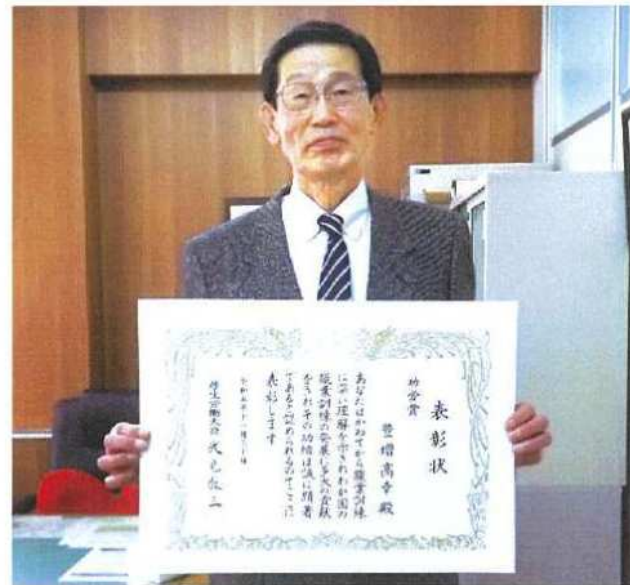 表彰状
功労賞
豊増高幸殿
あなたはかねてから職業訓練
に深い理解を示されわが国の
職業訓練の発展に多大の貢献
をされその功績は誠に顕著
であると認められるのでここに
表彰します
厚生労働大臣 武見敬三